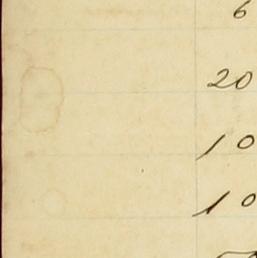 6
20
10
10